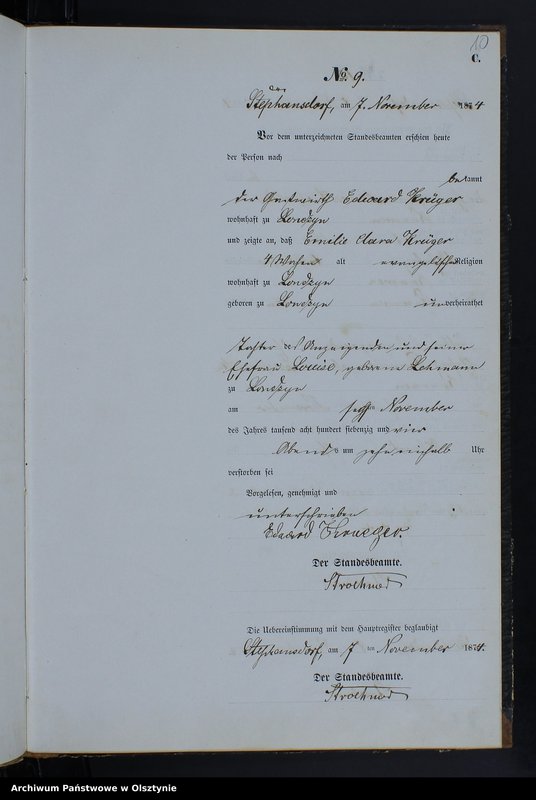 10
C.
No. 9.
Stephansdorf, am 7. November 1874
Vor dem unterzeichneten Standesbeamten erschien heute
der Person nach
bekannt
der Gastwirth Eduard Krüger
wohnhaft zu Londzyn
und zeigte an, daß Emilie Clara Krüger
4 Wochen alt evangelischer Religion
wohnhaft zu Londzyn
geboren zu Londzyn unverheirathet
Tochter des Anzeigenden und seiner
Ehefrau Louise, geborene Lehmann
zu Londzyn
am sechsten November
des Jahres tausend acht hundert siebenzig und vier
Abends um zehn einhalb Uhr
verstorben sei
Vorgelesen, genehmigt und
unterschrieben
Eduard Krueger.
Der Standesbeamte.
Die Uebereinstimmung mit dem Hauptregister beglaubigt
Stephansdorf, am 7 ten November 1874.
Der Standesbeamte.
Archiwum Państwowe w Olsztynie